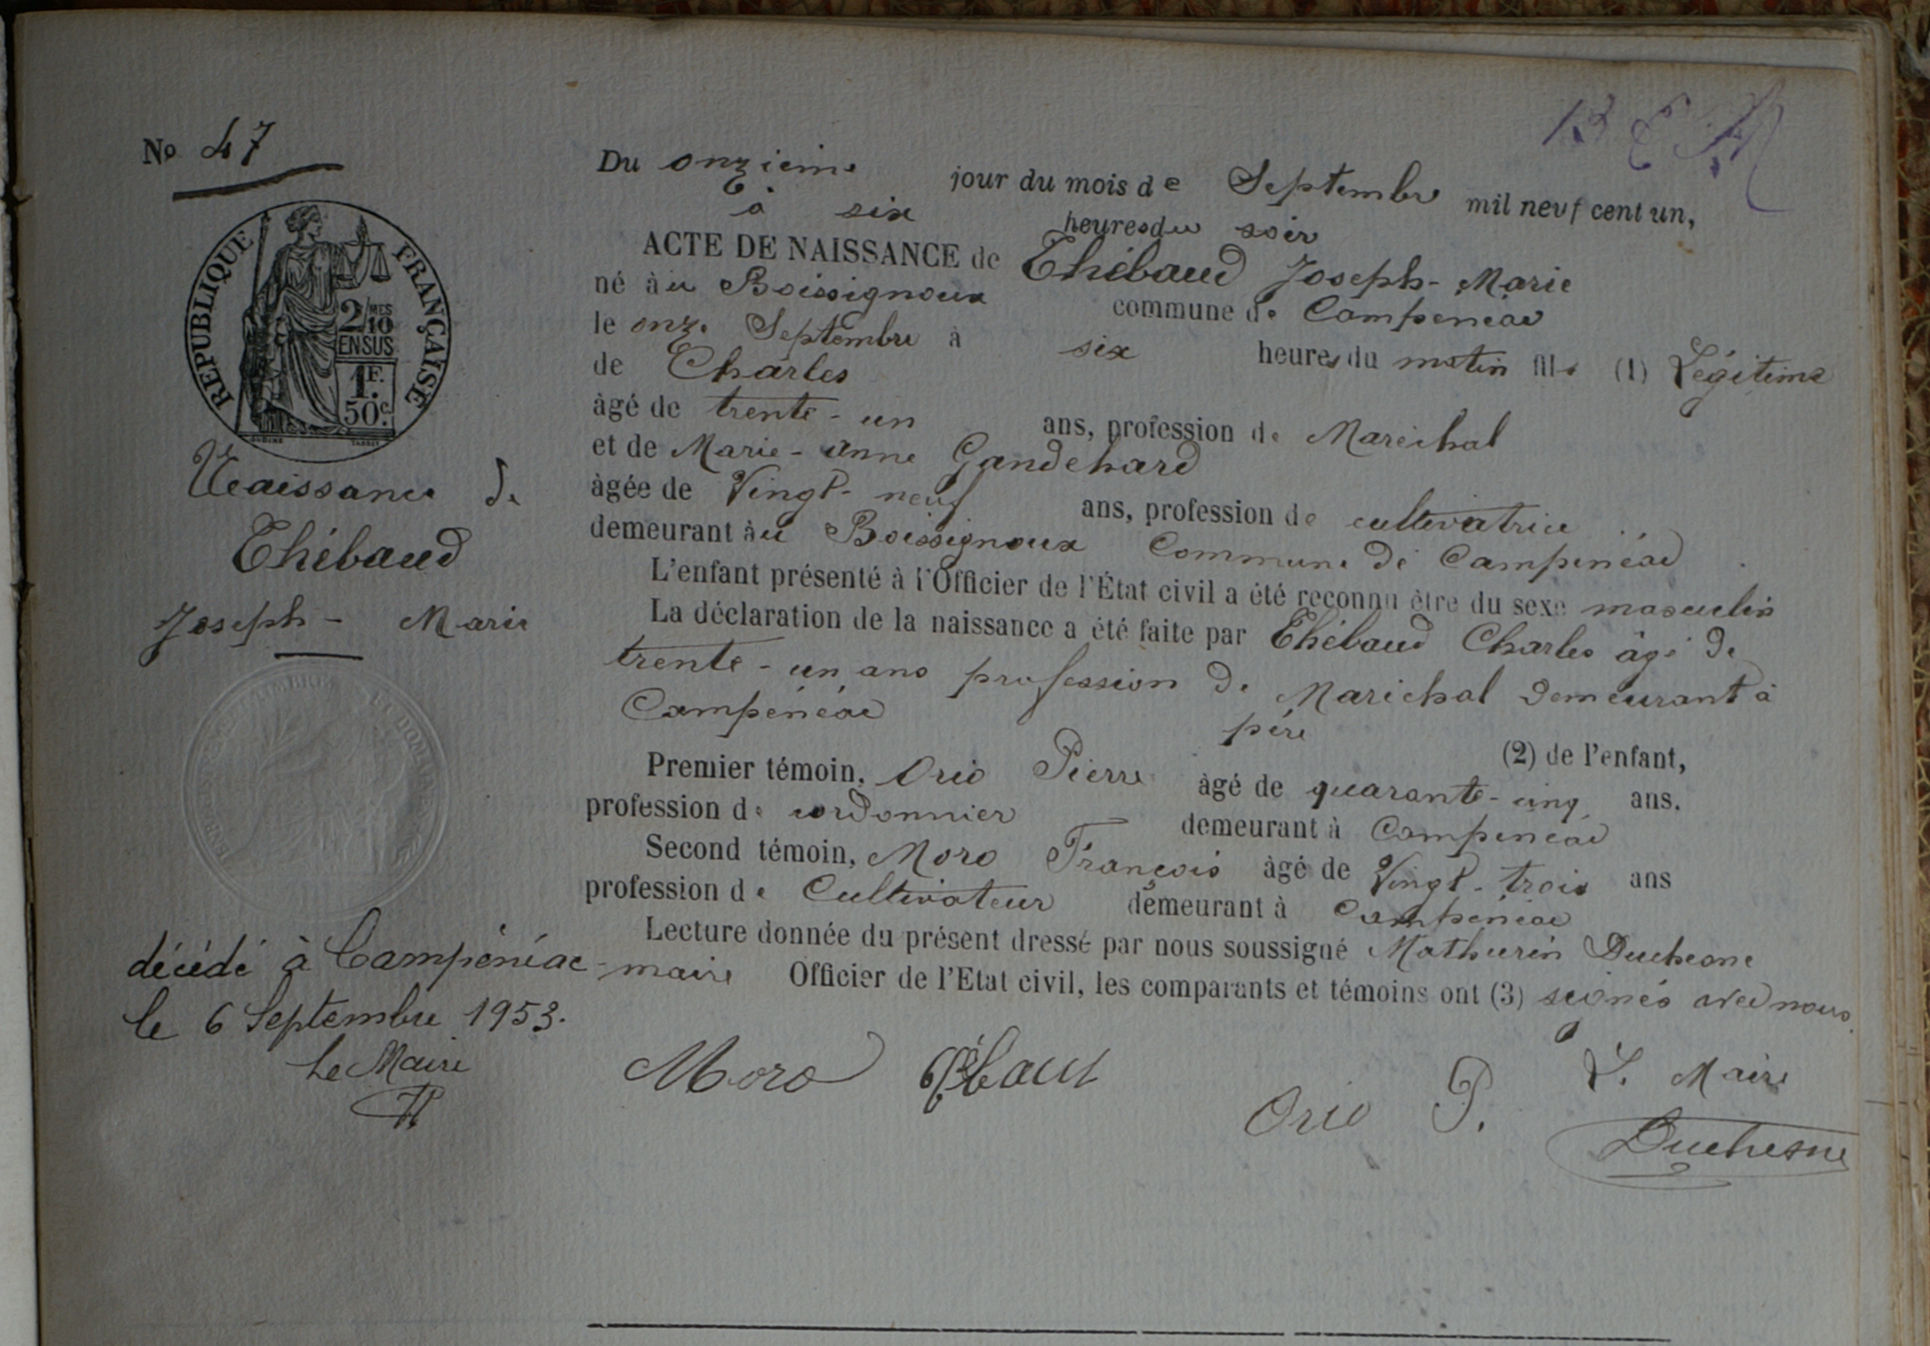 No 47
RÉPUBLIQUE FRANÇAISE
2/10 MES
EN SUS
1F.
50c.
Naissance de
Thébaud
Joseph - Marie
décédé à Campénéac
le 6 Septembre 1953.
Le Maire
13
Du onzième jour du mois de Septembre mil neuf cent un,
à six heures du soir
ACTE DE NAISSANCE de Thébaud Joseph-Marie
né àu Boissignoux commune de Campénéac
le onze Septembre à six heures du matin fils (1) Légitime
de Charles
âgé de trente-un ans, profession de Maréchal
et de Marie-Anne Gandehard
âgée de Vingt-neuf ans, profession de cultivatrice
demeurant àu Boissignoux Commune de Campénéac
L'enfant présenté à l'Officier de l'État civil a été reconnu être du sexe masculin
La déclaration de la naissance a été faite par Thébaud Charles âgé de
trente-un ans profession de Maréchal demeurant à
Campénéac père (2) de l'enfant,
Premier témoin, Orio Pierre âgé de quarante-cinq ans.
profession de cordonnier demeurant à Campénéac
Second témoin, Moro François âgé de Vingt-trois ans
profession de Cultivateur demeurant à Campénéac
Lecture donnée du présent dressé par nous soussigné Mathurin Duchesne
maire Officier de l'Etat civil, les comparants et témoins ont (3) signés avec nous.
Moro Thébaud Orio P. Le Maire
Duchesne